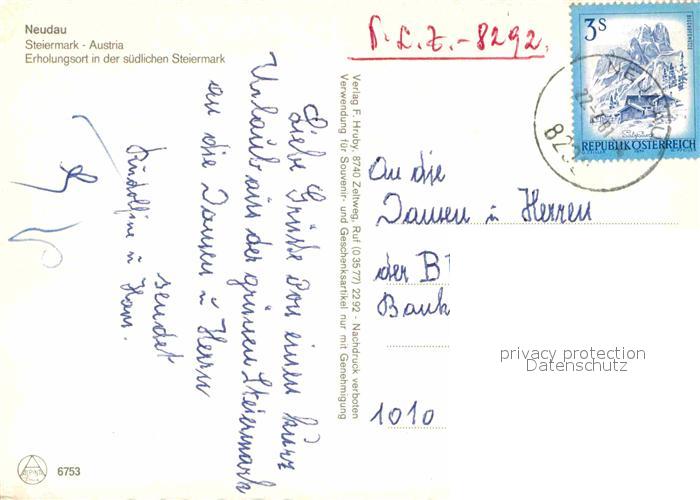 Neudau
Steiermark - Austria
Erholungsort in der südlichen Steiermark
P.L.Z. - 8292.
3 S
REPUBLIK ÖSTERREICH
Liebe Grüße von einen kurz
Urlaub aus der grünen Steiermark
an die Damen u Herrn
sendet
Rudolfine u Hans.
Verlag F. Hruby, 8740 Zeltweg, Ruf (0 35 77) 22 92 - Nachdruck verboten
Verwendung für Souvenir- und Geschenksartikel nur mit Genehmigung
An die
Damen u Herren
der B
Bank
1010
privacy protection
Datenschutz
6753